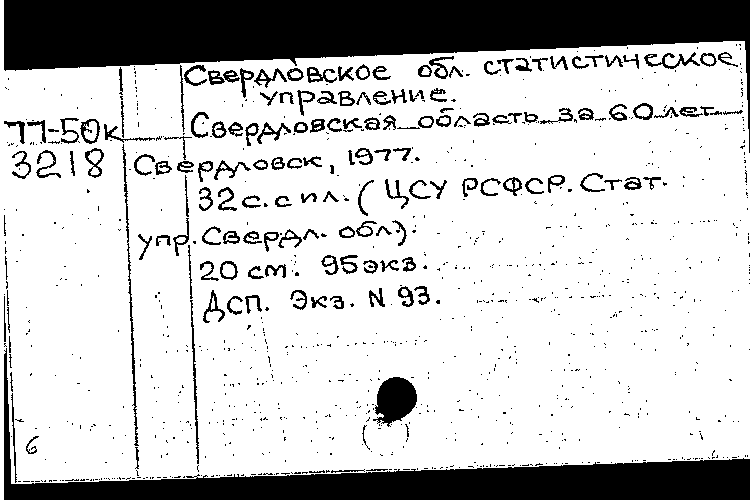 Свердловское обл. статистическое
управление.
77-50к Свердловская область за 60 лет
3218 Свердловск, 1977.
32с. с ил. (ЦСУ РСФСР. Стат.
упр. Свердл. обл).
20 см. 95экз.
ДСП. Экз. N 93.
6